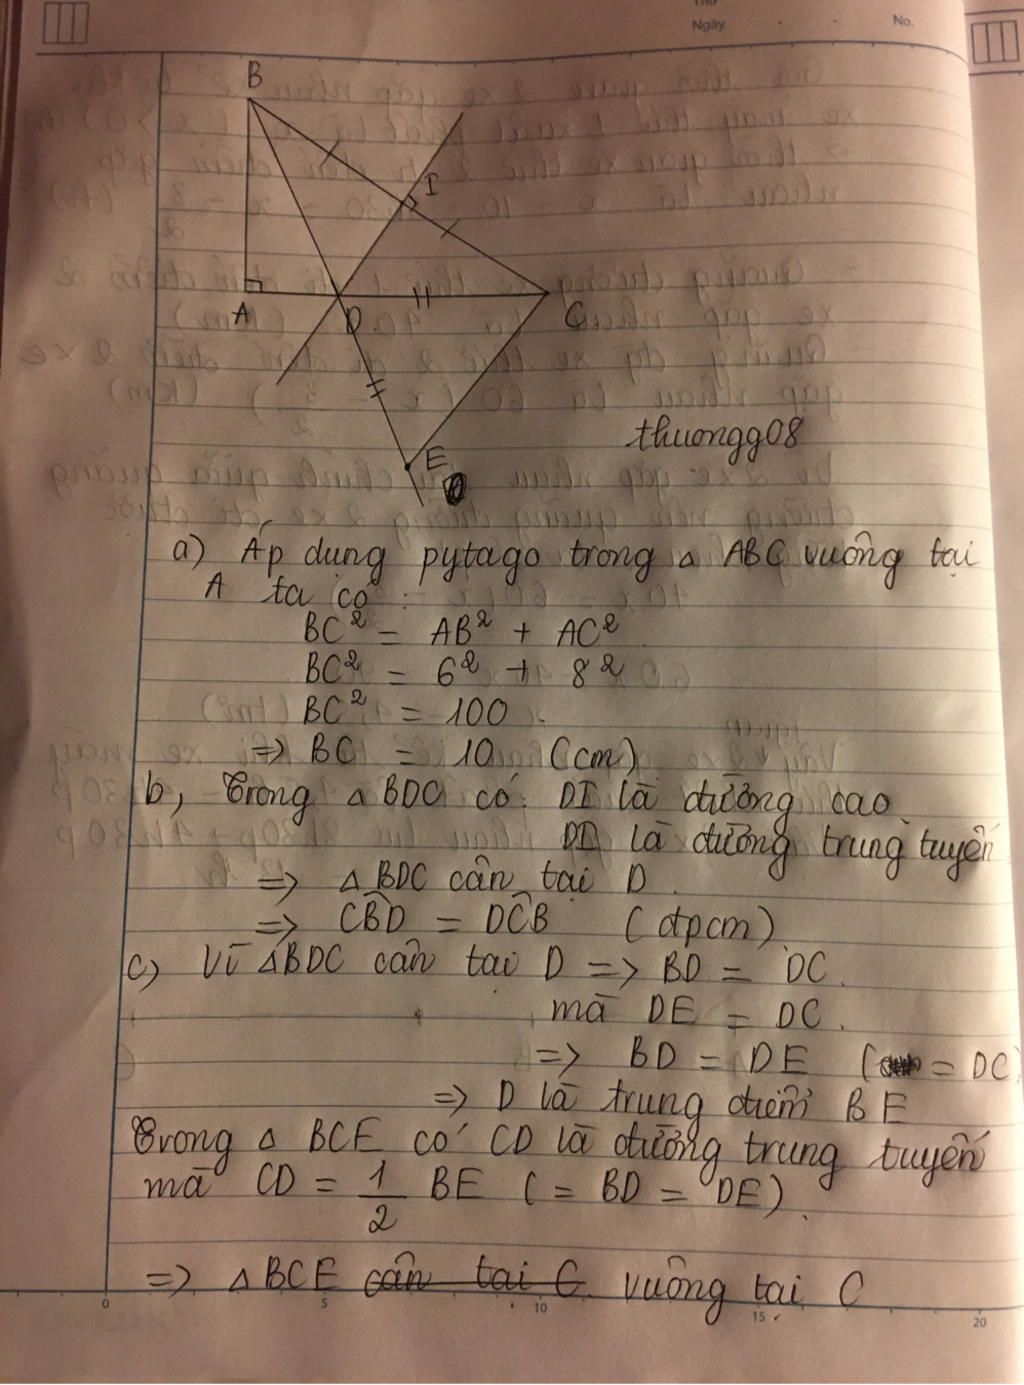 Thứ
Ngày . . No.
B
I
A D C
E
thuongg08
a) Áp dụng pytago trong △ ABC vuông tại
A ta có :
BC² = AB² + AC²
BC² = 6² + 8²
BC² = 100 .
=> BC = 10 (cm)
b, Trong △ BDC có: DI là đường cao
DI là đường trung tuyến
=> △ BDC cân tại D .
=> CBD = DCB (đpcm)
c) Vì △BDC cân tại D => BD = DC .
mà DE = DC .
=> BD = DE ( = DC)
=> D là trung điểm BE
Trong △ BCE có CD là đường trung tuyến
mà CD = 1/2 BE ( = BD = DE) .
=> △ BCE cân tại C vuông tại C
0 5 10 15 20